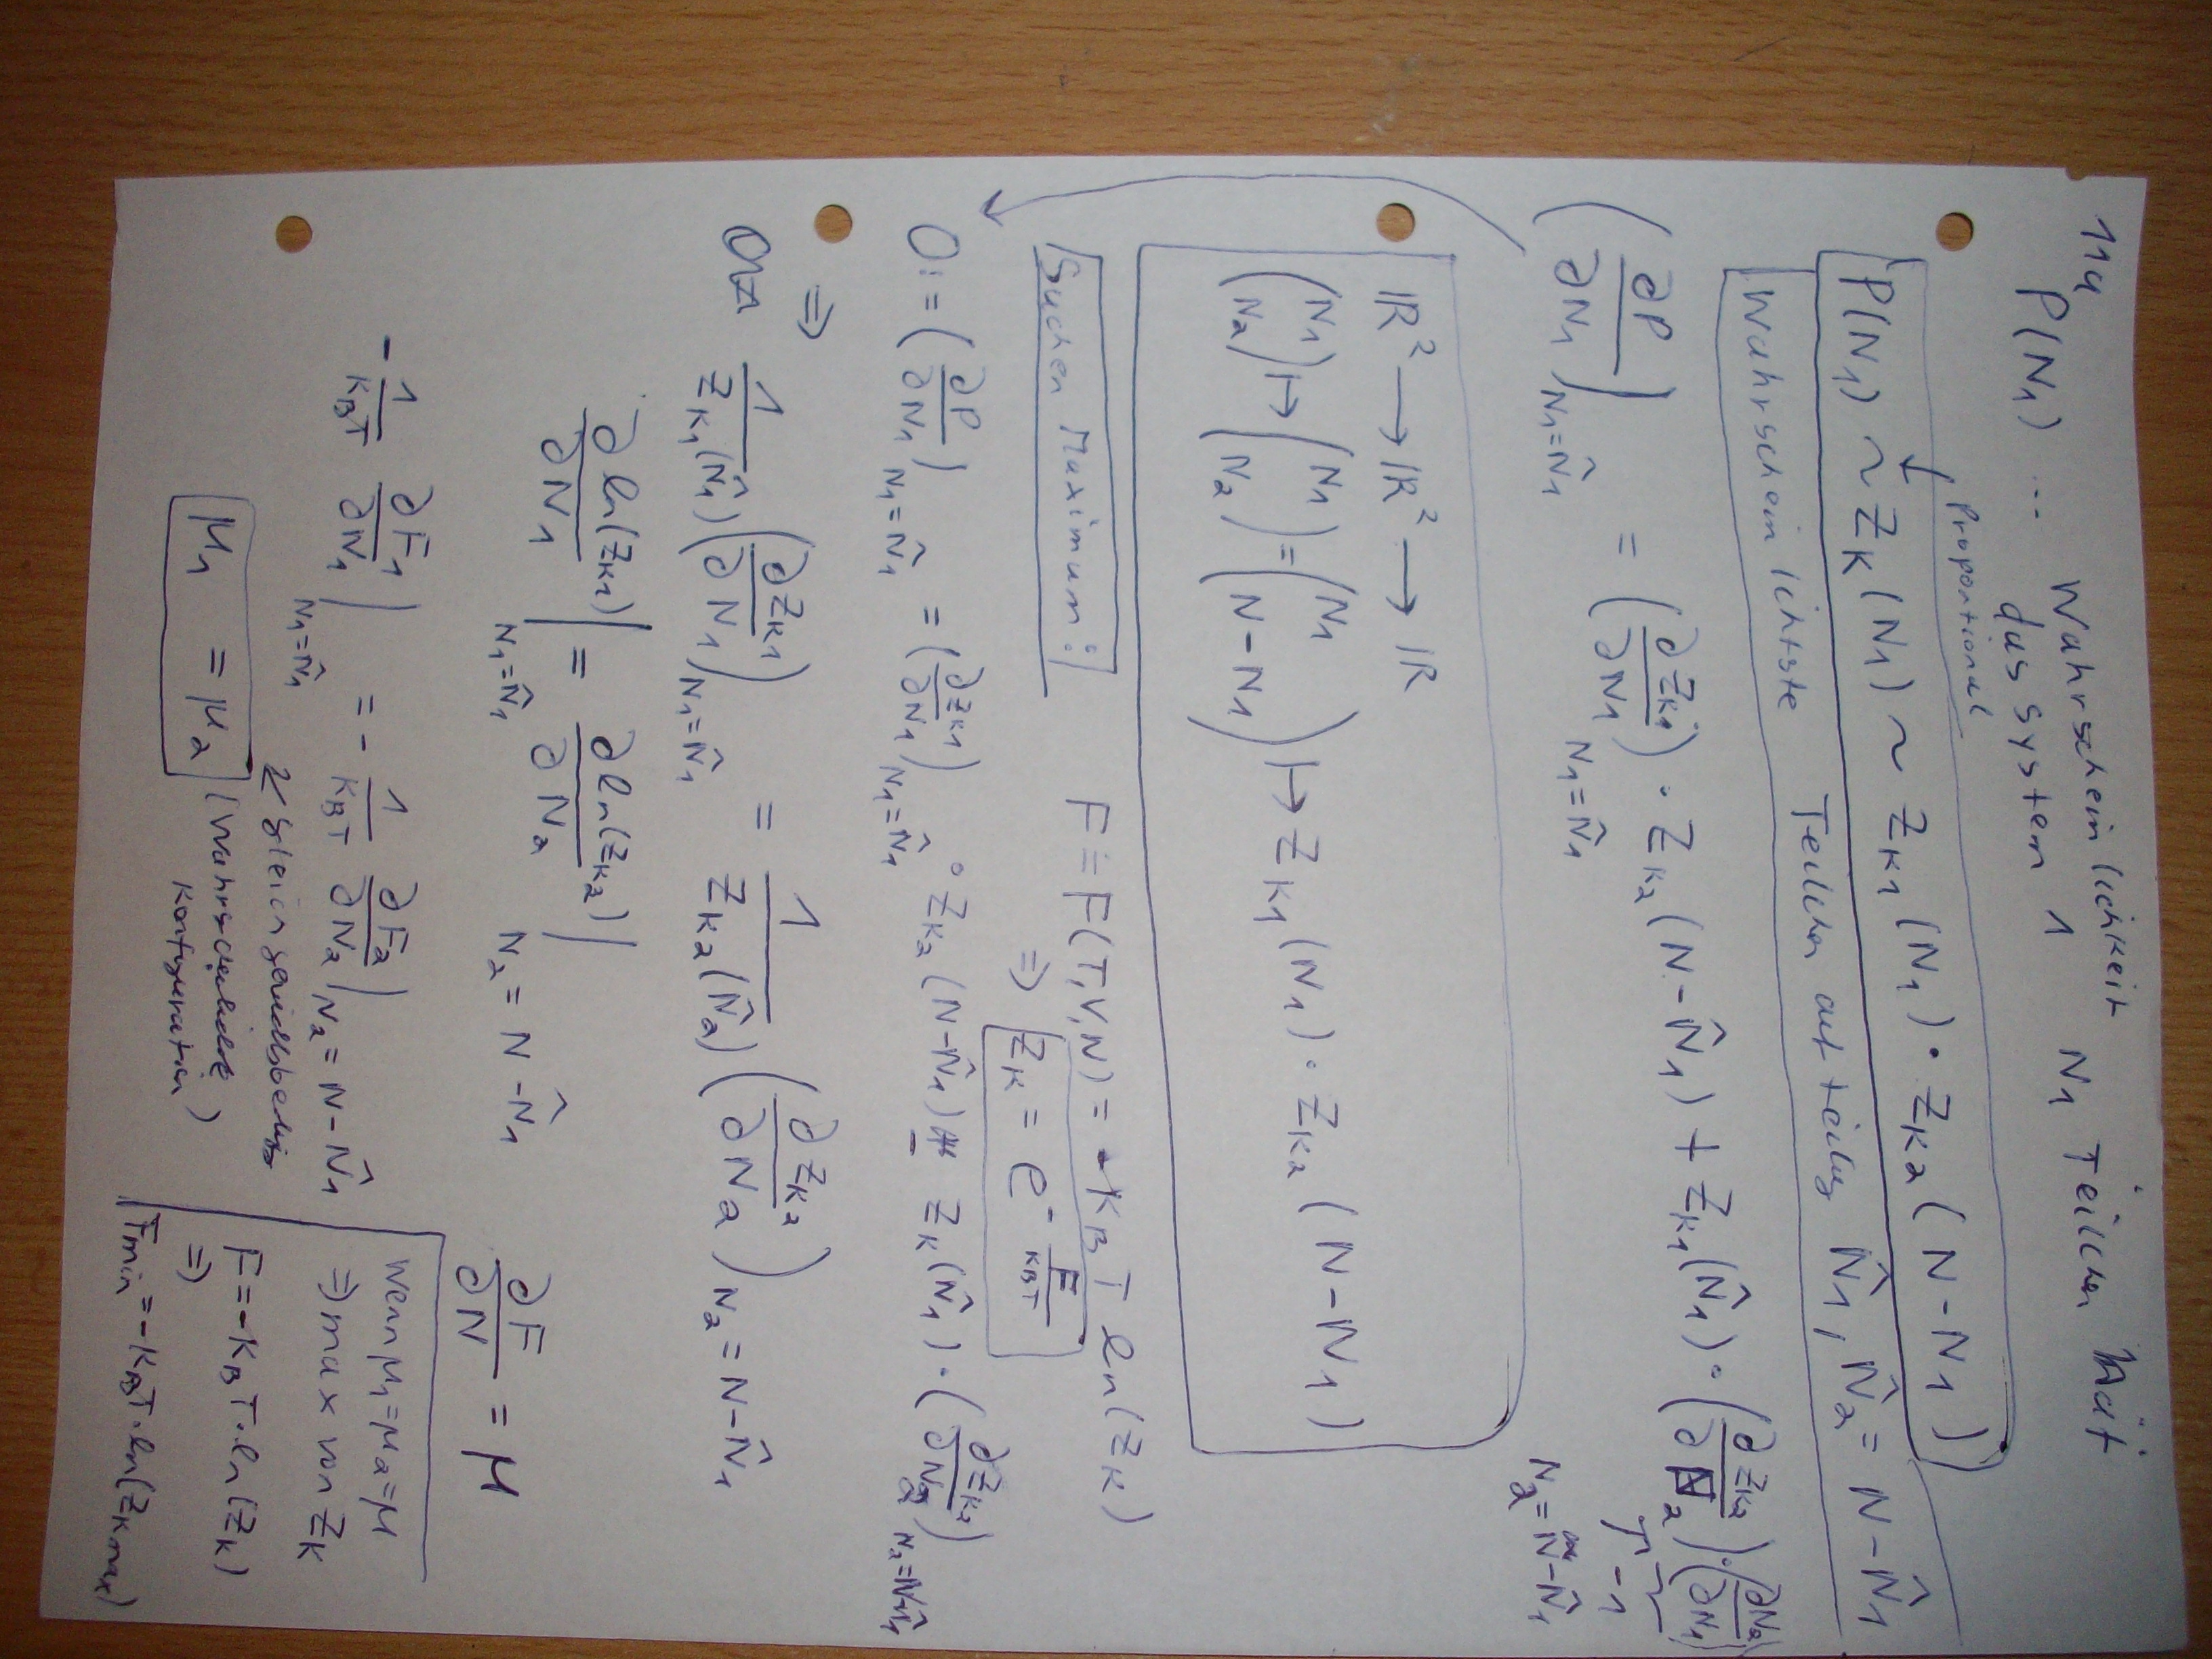 11a
P(N₁) ... Wahrscheinlichkeit
das System 1 N₁ Teilchen hat
Proportional
P(N₁) ~ Z_K(N₁) ~ Z_K1(N₁) · Z_K2(N - N₁)
Wahrscheinlichste Teilchenaufteilung N̂₁, N̂₂ = N - N̂₁
(∂P/∂N₁)_{N₁=N̂₁} = (∂Z_K1/∂N₁)_{N₁=N̂₁} · Z_K2(N - N̂₁) + Z_K1(N̂₁) · (∂Z_K2/∂N₂)·(∂N₂/∂N₁)
-1
N₂ = N - N̂₁
ℝ² → ℝ² → ℝ
(N₁ N₂) ↦ (N₁ N₂) = (N₁ N - N₁) ↦ Z_K1(N₁) · Z_K2(N - N₁)
Suchen Maximum:
F = F(T,V,N) = -K_B T ln(Z_K)
⇒ Z_K = e^{-F/K_BT}
0 := (∂P/∂N₁)_{N₁=N̂₁} = (∂Z_K1/∂N₁)_{N₁=N̂₁} · Z_K2(N - N̂₁) - Z_K(N̂₁) · (∂Z_K2/∂N₂)_{N₂=N-N̂₁}
⇒
1/Z_K1(N̂₁) (∂Z_K1/∂N₁)_{N₁=N̂₁} = 1/Z_K2(N̂₂) (∂Z_K2/∂N₂)_{N₂=N-N̂₁}
∂ln(Z_K1)/∂N₁ |_{N₁=N̂₁} = ∂ln(Z_K2)/∂N₂ |_{N₂=N-N̂₁}
∂F/∂N = μ
-1/K_BT ∂F₁/∂N₁ |_{N₁=N̂₁} = -1/K_BT ∂F₂/∂N₂ |_{N₂=N-N̂₁}
μ₁ = μ₂
(Wahrscheinlichste
Konfiguration)
Wenn μ₁=μ₂=μ
⇒ max von Z_K
F = -K_BT·ln(Z_K)
⇒
F_min = -K_BT·ln(Z_Kmax)